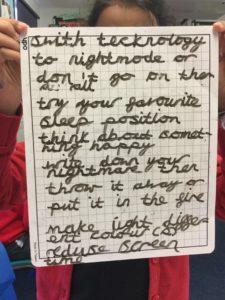 swith tecknology
to nightmode or
don't go on then
at all
try your favourite
sleep position
think about somet-
hing happy
write down your
nightmare then
throw it away or
put it in the fire
make light differ-
ent colour
reduse screen
time